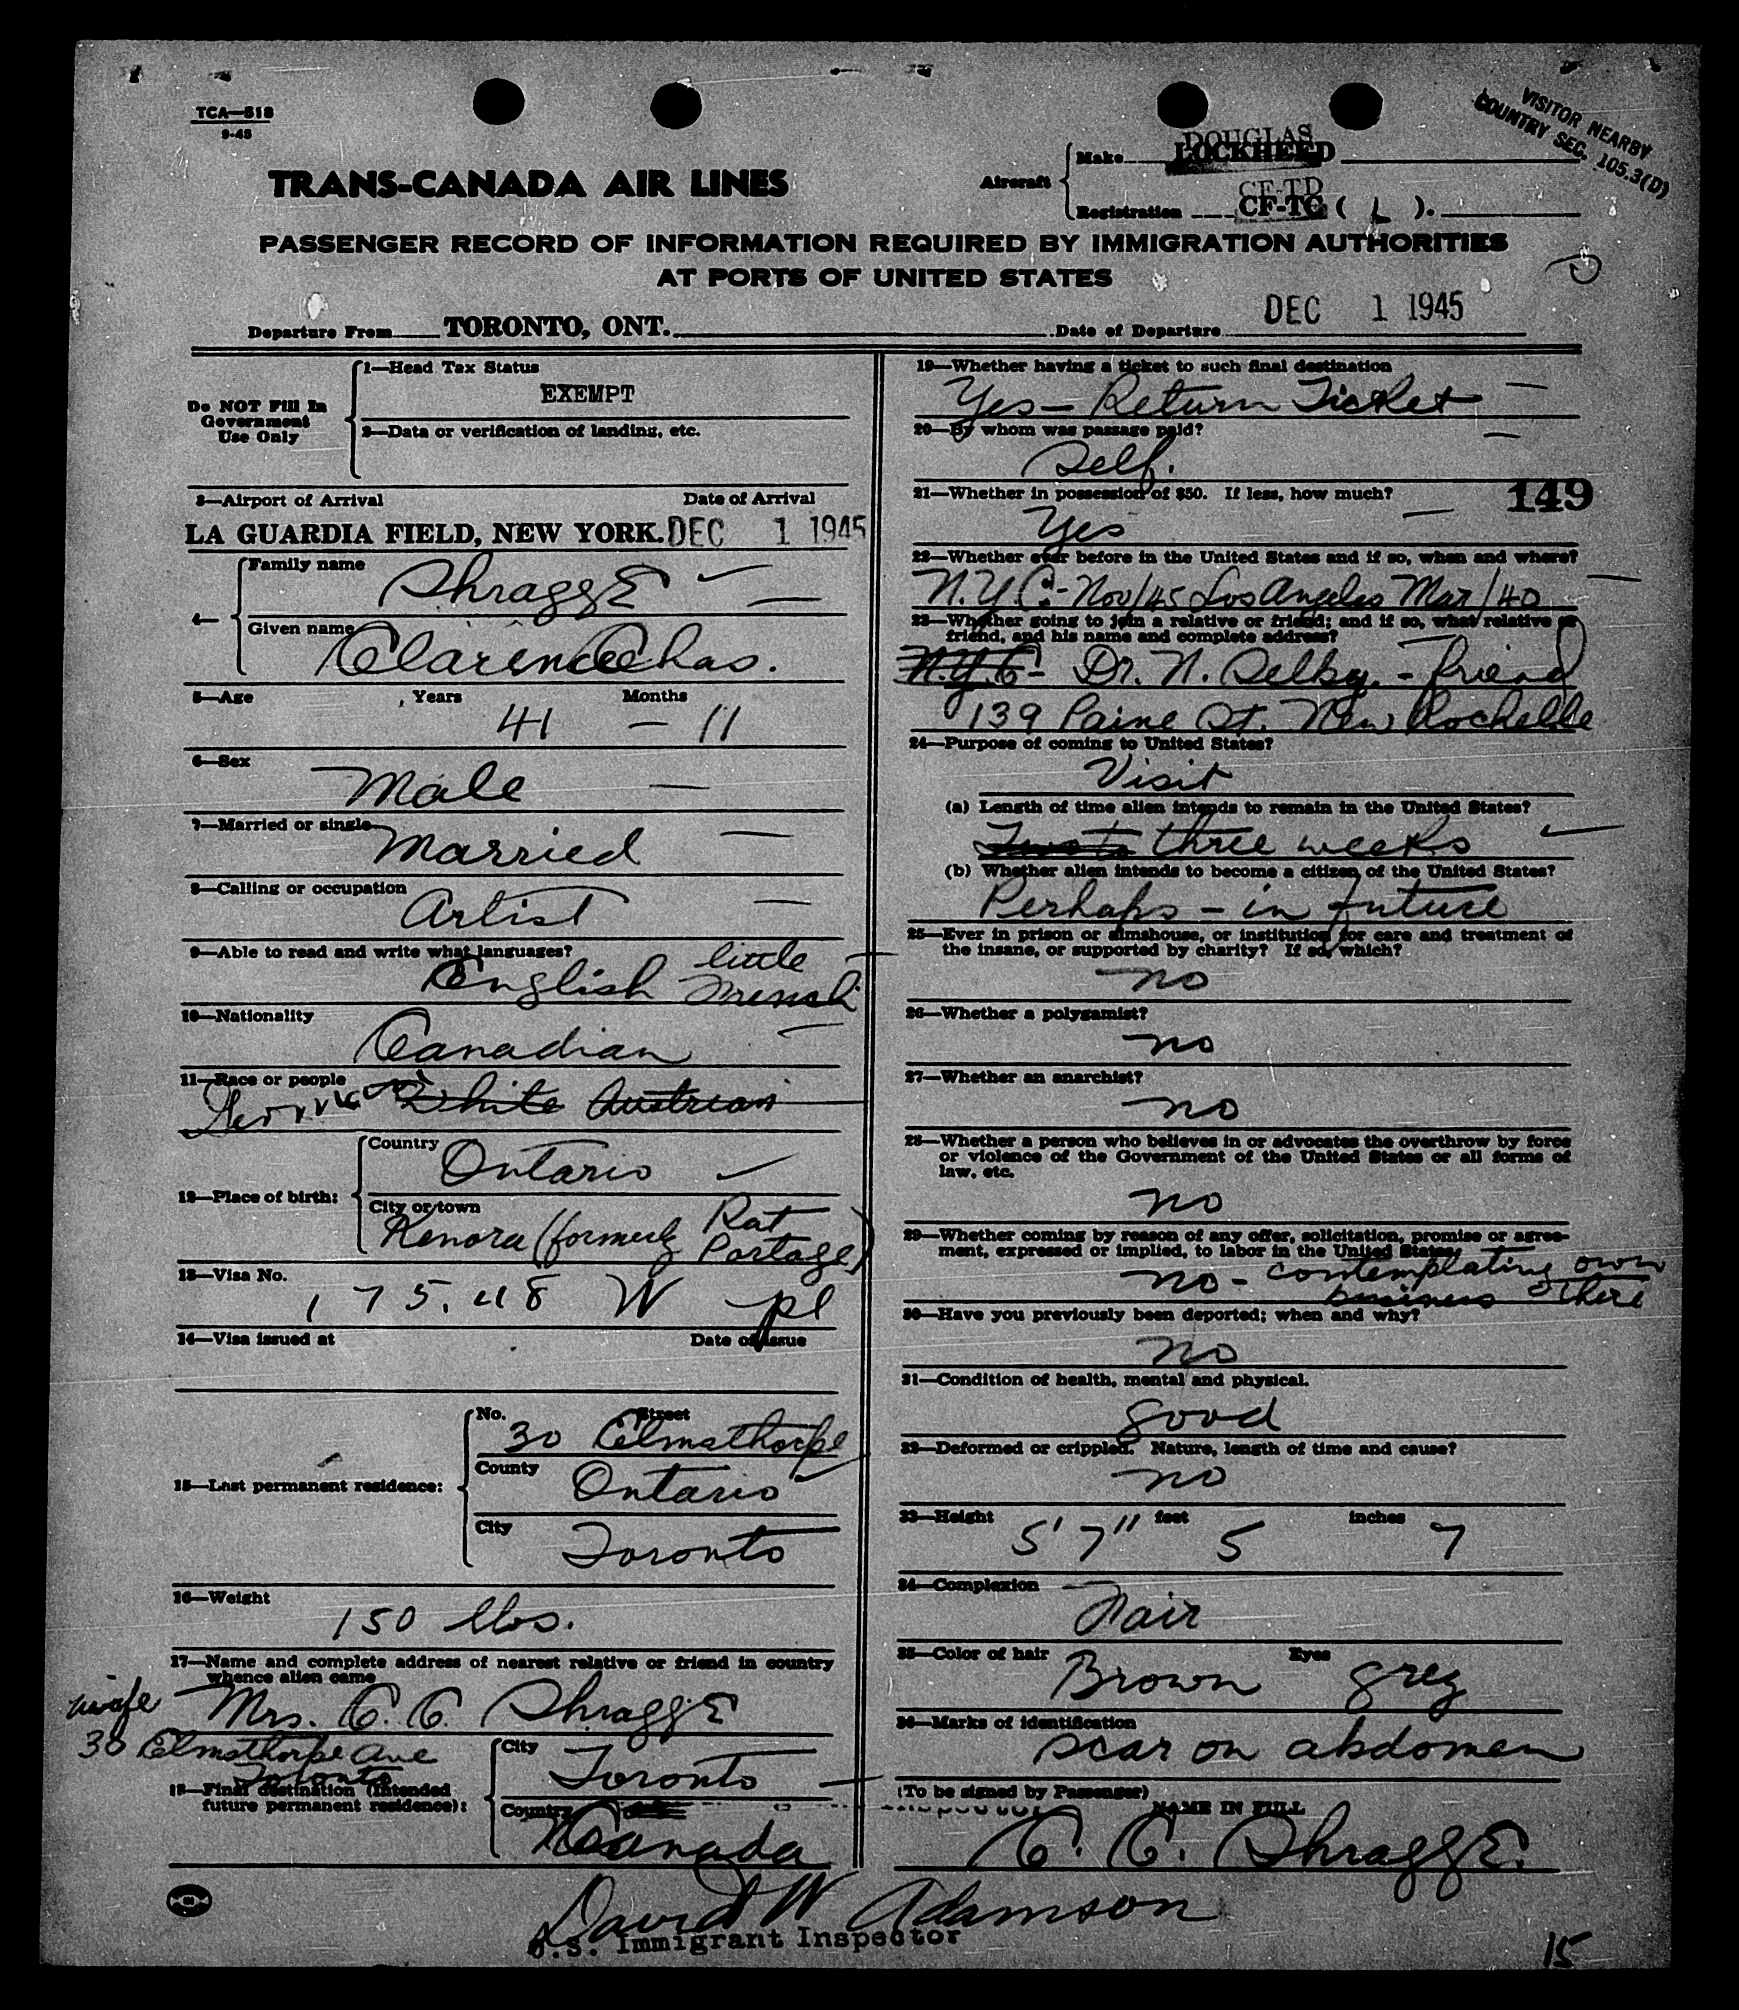 TCA—518
9-45
VISITOR NEARBY
COUNTRY SEC. 105.3(D)
TRANS-CANADA AIR LINES
Aircraft
Make DOUGLAS
LOCKHEED
Registration CF-TD
CF-TC ( L ).
PASSENGER RECORD OF INFORMATION REQUIRED BY IMMIGRATION AUTHORITIES
AT PORTS OF UNITED STATES
Departure From TORONTO, ONT. Date of Departure DEC 1 1945
Do NOT Fill In
Government
Use Only
1—Head Tax Status
EXEMPT
2—Data or verification of landing, etc.
3—Airport of Arrival Date of Arrival
LA GUARDIA FIELD, NEW YORK. DEC 1 1945
4—
Family name
Shragge
Given name
Clarence Chas.
5—Age Years Months
41 – 11
6—Sex
Male
7—Married or single
Married
8—Calling or occupation
Artist
9—Able to read and write what languages?
English little French
10—Nationality
Canadian
11—Race or people
German White Austrian
12—Place of birth:
Country
Ontario
City or town
Kenora (formerly Rat Portage)
13—Visa No.
175.418 W pl
14—Visa issued at Date of issue
15—Last permanent residence:
No. Street
30 Elmsthorpe
County
Ontario
City
Toronto
16—Weight
150 lbs.
17—Name and complete address of nearest relative or friend in country
whence alien came
wife Mrs. C. C. Shragge
30 Elmsthorpe Ave
Toronto
18—Final destination (Intended
future permanent residence):
City
Toronto
Country
Canada
19—Whether having a ticket to such final destination
Yes – Return Ticket
20—By whom was passage paid?
Self.
21—Whether in possession of $50. If less, how much?
149
Yes
22—Whether ever before in the United States and if so, when and where?
N.Y.C. - Nov/45 Los Angeles Mar/40
23—Whether going to join a relative or friend; and if so, what relative or
friend, and his name and complete address?
N.Y.C - Dr. N. Selby. - friend
139 Paine St. New Rochelle
24—Purpose of coming to United States?
Visit
(a) Length of time alien intends to remain in the United States?
Two to three weeks
(b) Whether alien intends to become a citizen of the United States?
Perhaps – in future
25—Ever in prison or almshouse, or institution for care and treatment of
the insane, or supported by charity? If so, which?
no
26—Whether a polygamist?
no
27—Whether an anarchist?
no
28—Whether a person who believes in or advocates the overthrow by force
or violence of the Government of the United States or all forms of
law, etc.
no
29—Whether coming by reason of any offer, solicitation, promise or agree-
ment, expressed or implied, to labor in the United States
no - contemplating own
business there
30—Have you previously been deported; when and why?
no
31—Condition of health, mental and physical.
good
32—Deformed or crippled. Nature, length of time and cause?
no
33—Height feet inches
5' 7" 5 7
34—Complexion
Fair
35—Color of hair Eyes
Brown grey
36—Marks of identification
scar on abdomen
(To be signed by Passenger)
NAME IN FULL
C. C. Shragge.
David W Adamson
U.S. Immigrant Inspector
15